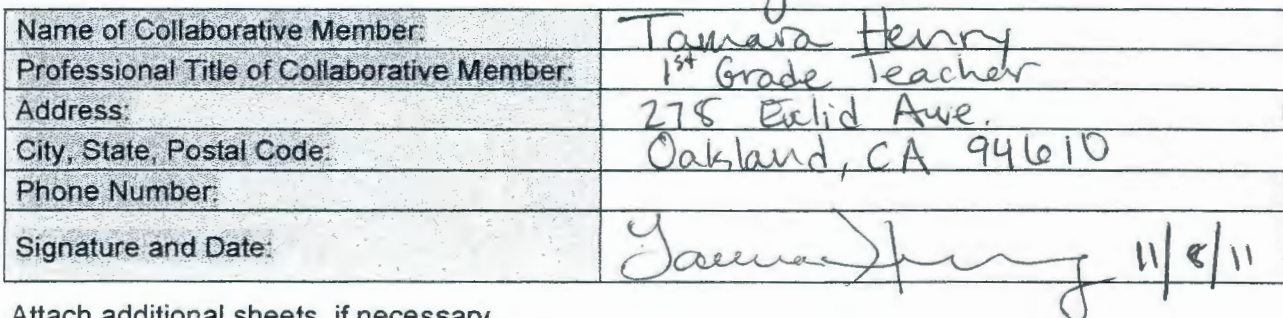 Name of Collaborative Member: Tamara Henry
Professional Title of Collaborative Member: 1st Grade Teacher
Address: 278 Euclid Ave.
City, State, Postal Code: Oakland, CA 94610
Phone Number:
Signature and Date: Tamara Henry 11/8/11
Attach additional sheets, if necessary